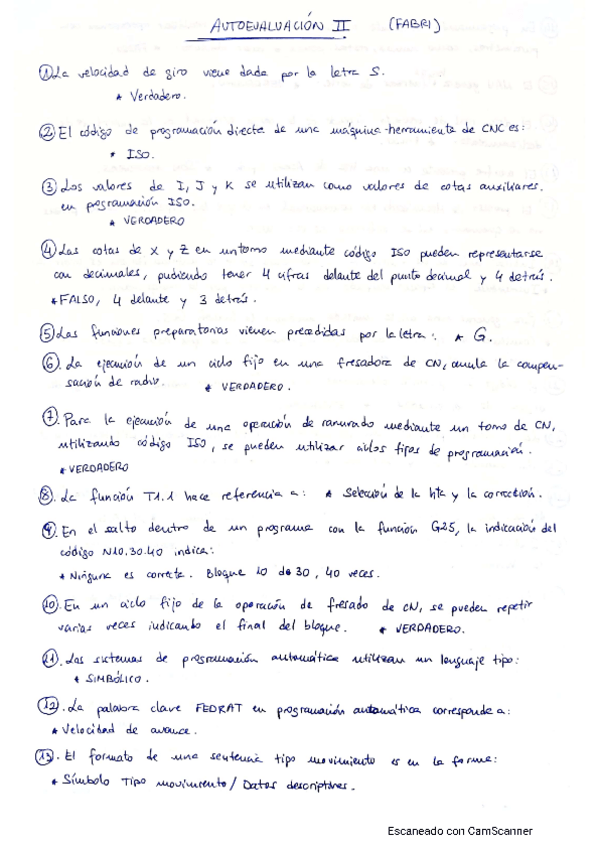 AUTOEVALUACIÓN II (FABRI)
① La velocidad de giro viene dada por la letra S.
* Verdadero.
② El código de programación directa de una máquina-herramienta de CNC es:
* ISO.
③ Los valores de I, J y K se utilizan como valores de cotas auxiliares.
en programación ISO.
* VERDADERO
④ Las cotas de X y Z en un torno mediante código ISO pueden representarse
con decimales, pudiendo tener 4 cifras delante del punto decimal y 4 detrás.
* FALSO, 4 delante y 3 detrás.
⑤ Las funciones preparatorias vienen precedidas por la letra: * G.
⑥. La ejecución de un ciclo fijo en una fresadora de CN, anula la compen-
sación de radio. * VERDADERO.
⑦. Para la ejecución de una operación de ranurado mediante un torno de CN,
utilizando código ISO, se pueden utilizar ciclos fijos de programación.
* VERDADERO
⑧. La función T1.1 hace referencia a: * Selección de la hta y la corrección.
⑨. En el salto dentro de un programa con la función G25, la indicación del
código N10.30.40 indica:
* Ninguna es correcta. Bloque 10 de 30, 40 veces.
⑩. En un ciclo fijo de la operación de fresado de CN, se pueden repetir
varias veces indicando el final del bloque. * VERDADERO.
⑪. Los sistemas de programación automática utilizan un lenguaje tipo:
* SIMBÓLICO.
⑫. La palabra clave FEDRAT en programación automática corresponde a:
* Velocidad de avance.
⑬. El formato de una sentencia tipo movimiento es en la forma:
* Símbolo Tipo movimiento / Datos descriptivos.
Escaneado con CamScanner